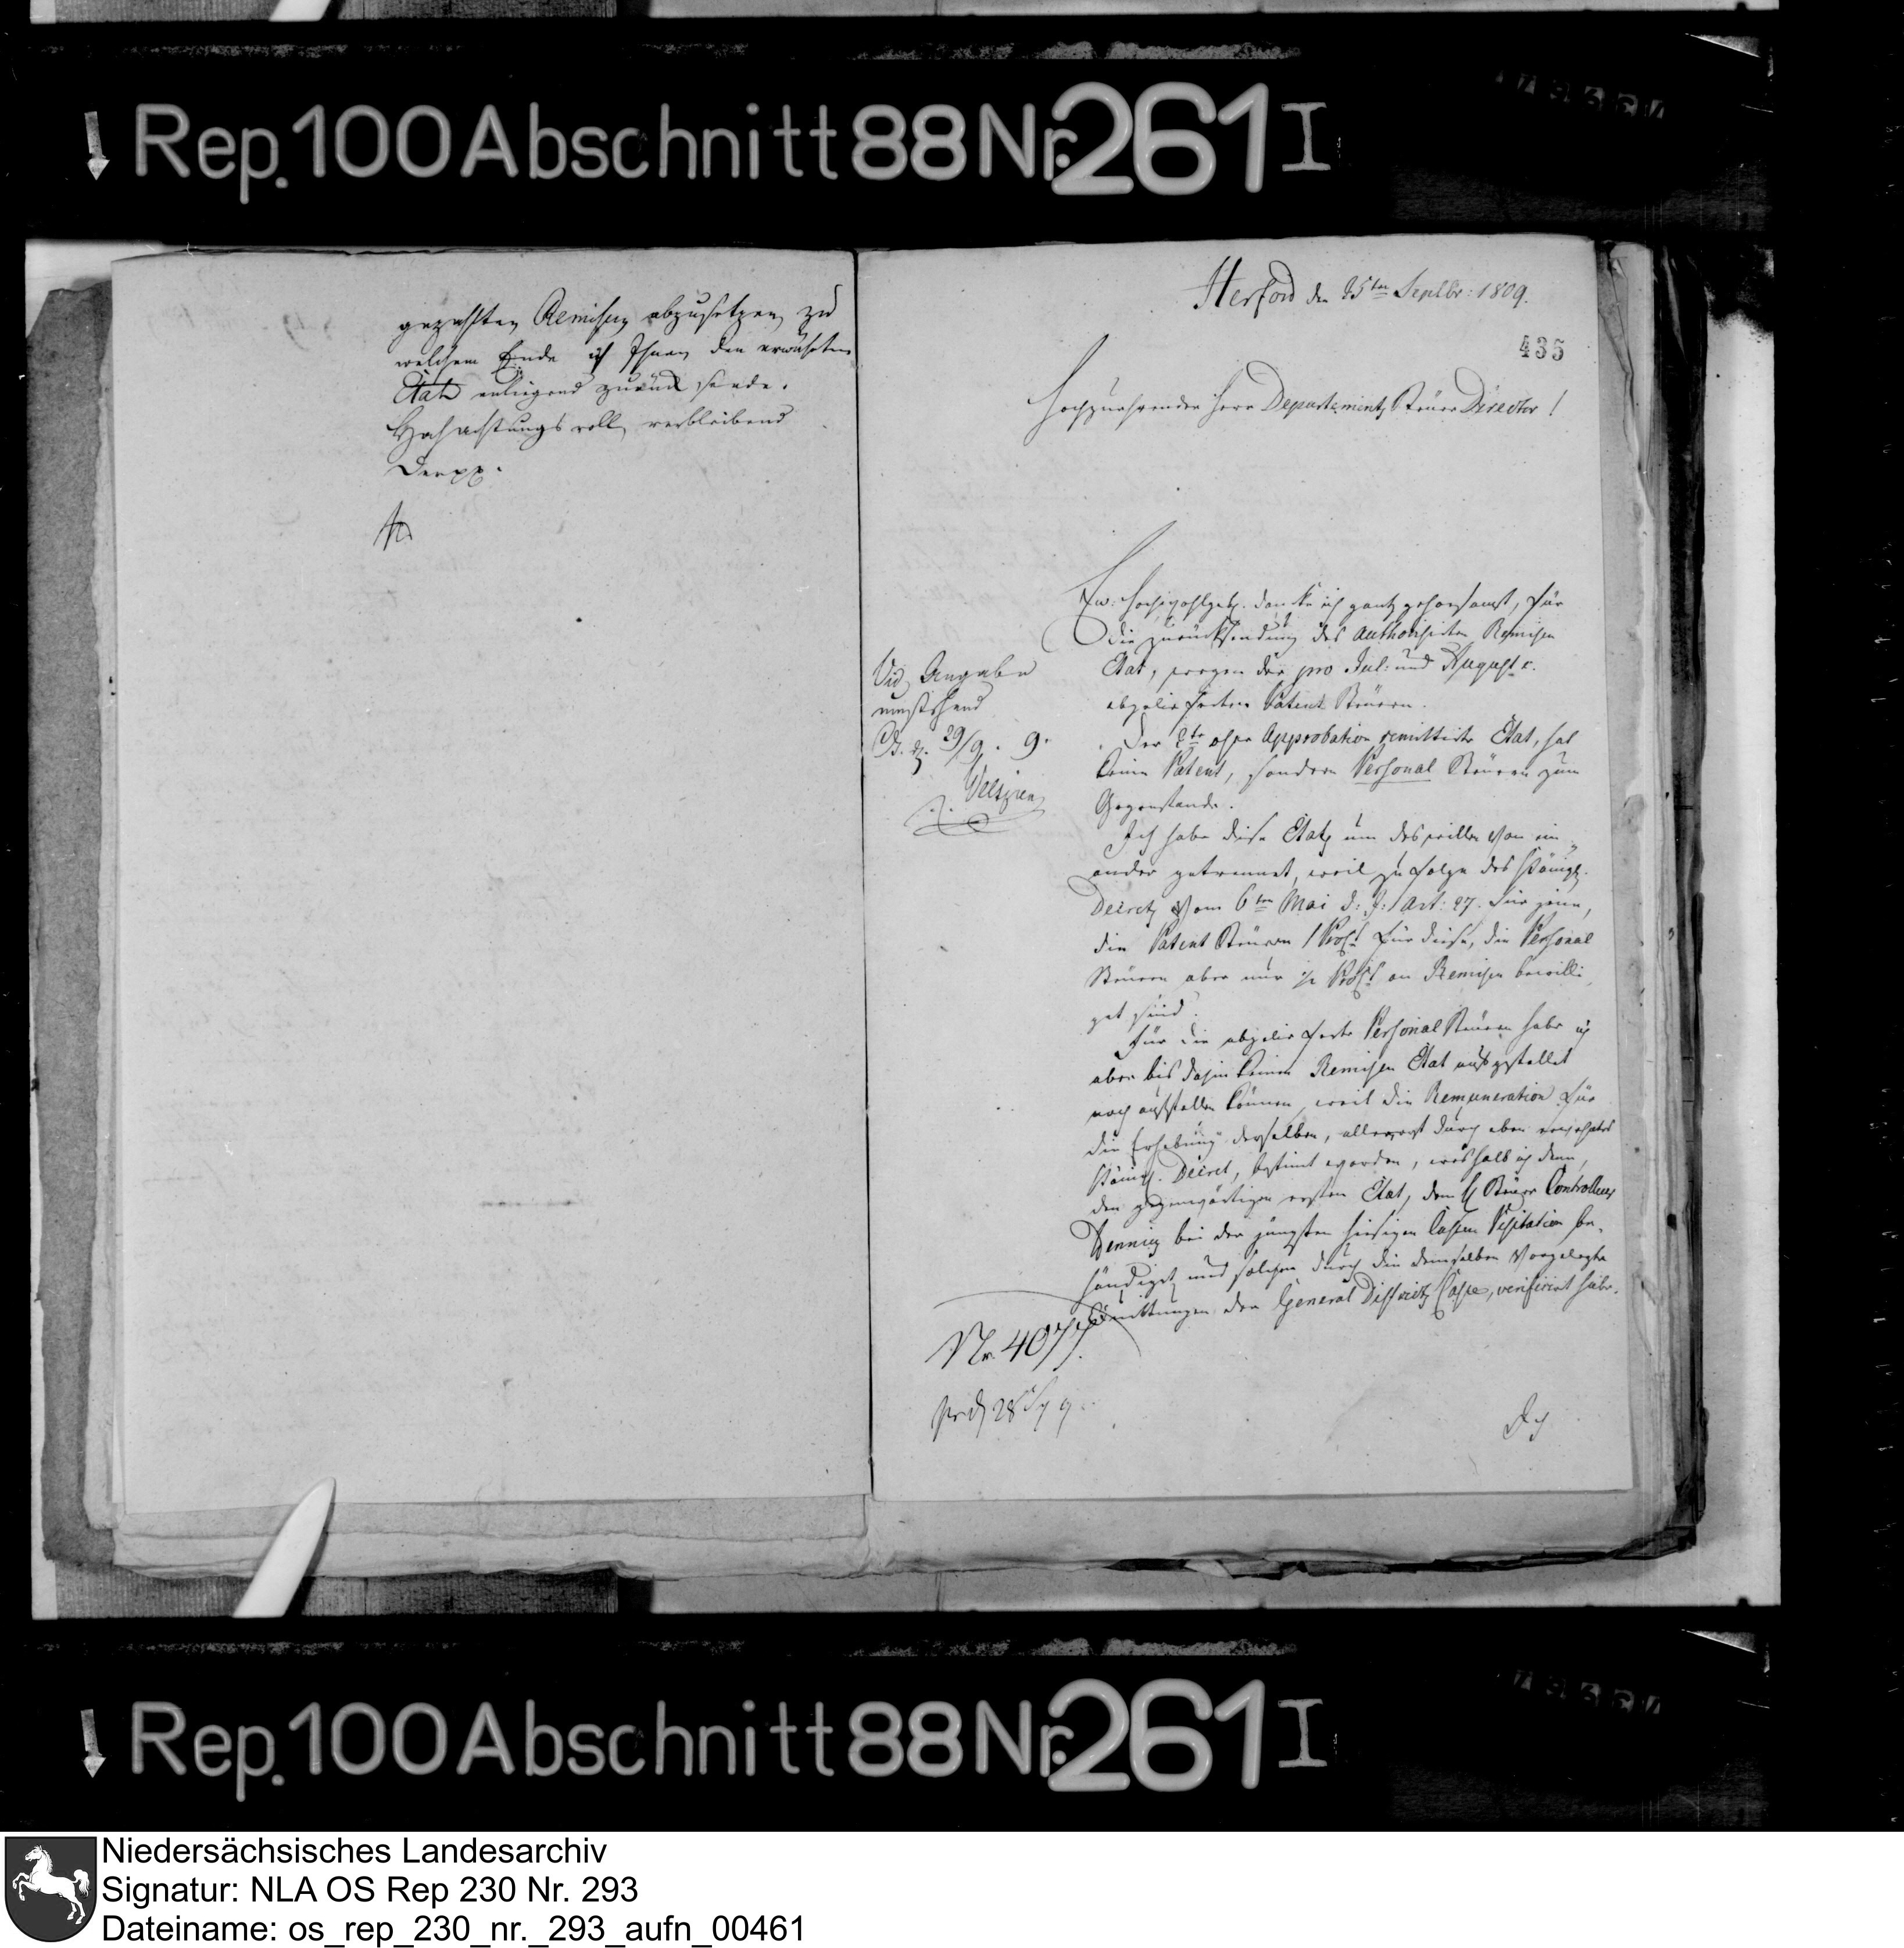 Rep. 100 Abschnitt 88 Nr. 261 I
gezahlten Remisen abzusetzen, zu
welchem Ende ich Ihnen den erwähnten
Etat anliegend zurück sende.
Hochachtungsvoll verbleibend
Der pp.
Herford den 25ten Septbr: 1809.
435
Hochzuehrender Herr Departements Steuer Director!
Ew: Hochwohlgeb. danke ich gantz gehorsamst, für
die Zurücksendung des authorisirten Remisen
Etat, wegen der pro Jul: und August c.
abgelieferten Patent Steuern.
Der 2te ohne Approbation remittirte Etat, hat
keine Patent, sondern Personal Steuern zum
Gegenstande.
Ich habe diese Etats um deswillen von ein
ander getrennet, weil zu folge des Königl.
Decrets vom 6ten Mai d: J: Art: 27. für jene,
die Patent Steuern 1 Proct für diese, die Personal
Steuern aber nur 1/2 Proct an Remisen bewilli
get sind.
Für die abgelieferte Personal Steuern habe ich
aber bis dahin keinen Remisen Etat ausgestellet
noch ausstellen können, weil die Remuneration für
die Erhebung derselben, allererst durch eben erwehntes
Königl. Decret, bestimt worden, weshalb ich denn,
den gegenwärtigen ersten Etat, dem H Steuer Controlleur
bei der jüngsten hiesigen Cassen Visitation be-
händiget, und solchen durch die demselben vorgelegte
Quittungen der General Districts Casse, verificirt habe.
Vid. Angabe
umstehend
O. d. 29/9. 9.
Nr. 4077.
28/9 9.
Rep. 100 Abschnitt 88 Nr. 261 I
Niedersächsisches Landesarchiv
Signatur: NLA OS Rep 230 Nr. 293
Dateiname: os_rep_230_nr._293_aufn_00461